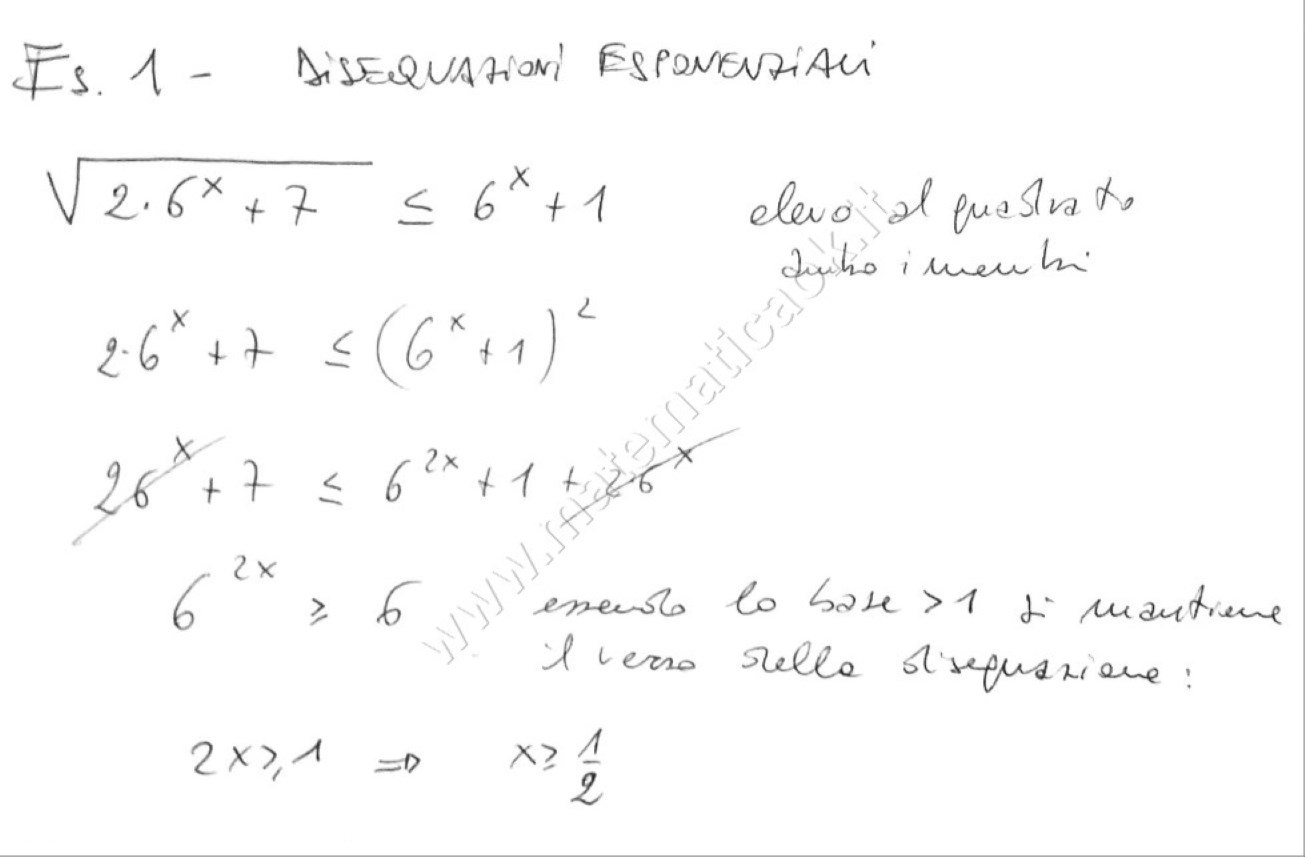 Es. 1 - DISEQUAZIONI ESPONENZIALI
√(2·6^x + 7) ≤ 6^x + 1 elevo al quadrato
ambo i membri
2·6^x + 7 ≤ (6^x + 1)^2
26^x + 7 ≤ 6^2x + 1 + 2·6^x
6^2x ≥ 6 essendo la base > 1 si mantiene
il verso della disequazione:
2x ≥ 1 ⇒ x ≥ 1/2
www.matematicaok.it